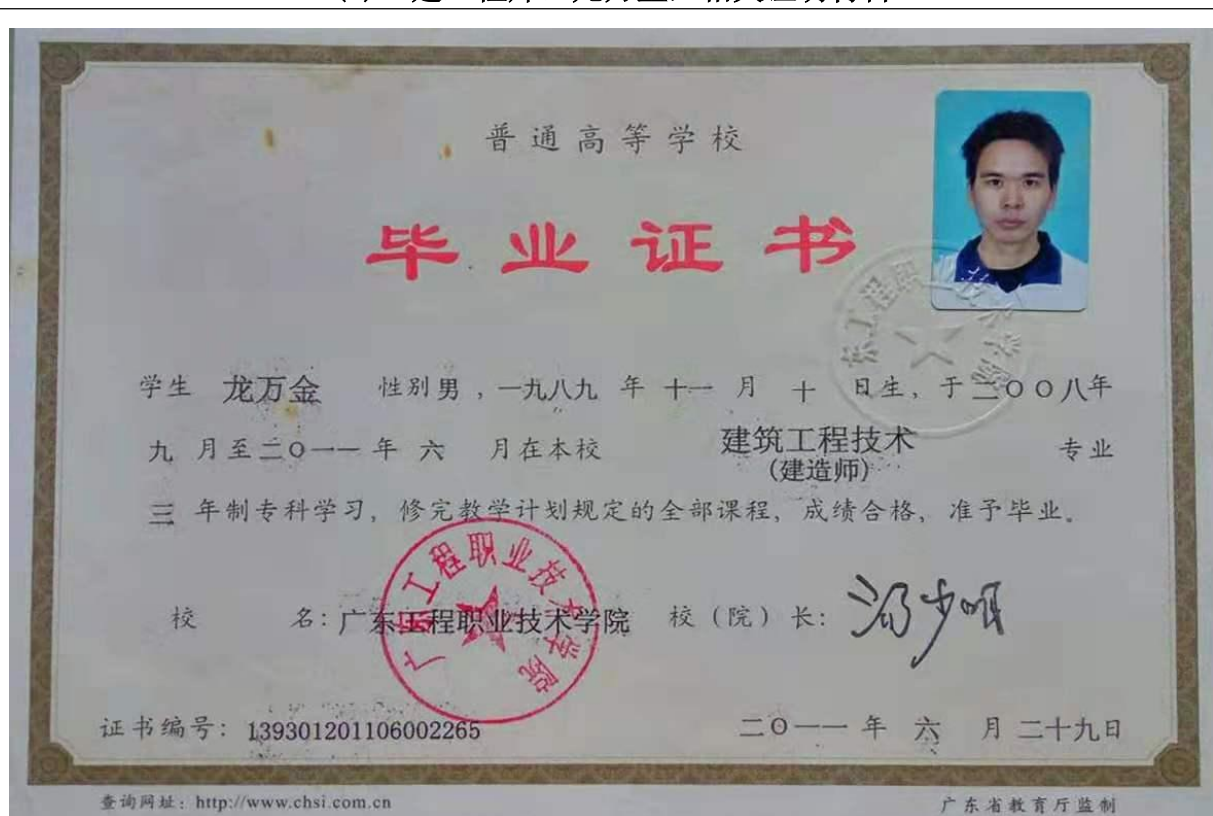 普通高等学校
毕业证书
学生 龙万金 性别 男，一九八九 年 十一 月 十 日生，于二〇〇八年
九 月至二〇一一 年 六 月在本校 建筑工程技术 专业
(建造师)
三 年制专科学习，修完教学计划规定的全部课程，成绩合格，准予毕业。
广东工程职业技术学院
校 名：广东工程职业技术学院 校（院）长：
证书编号：139301201106002265 二〇一一 年 六 月 二十九日
查询网址：http://www.chsi.com.cn 广东省教育厅监制